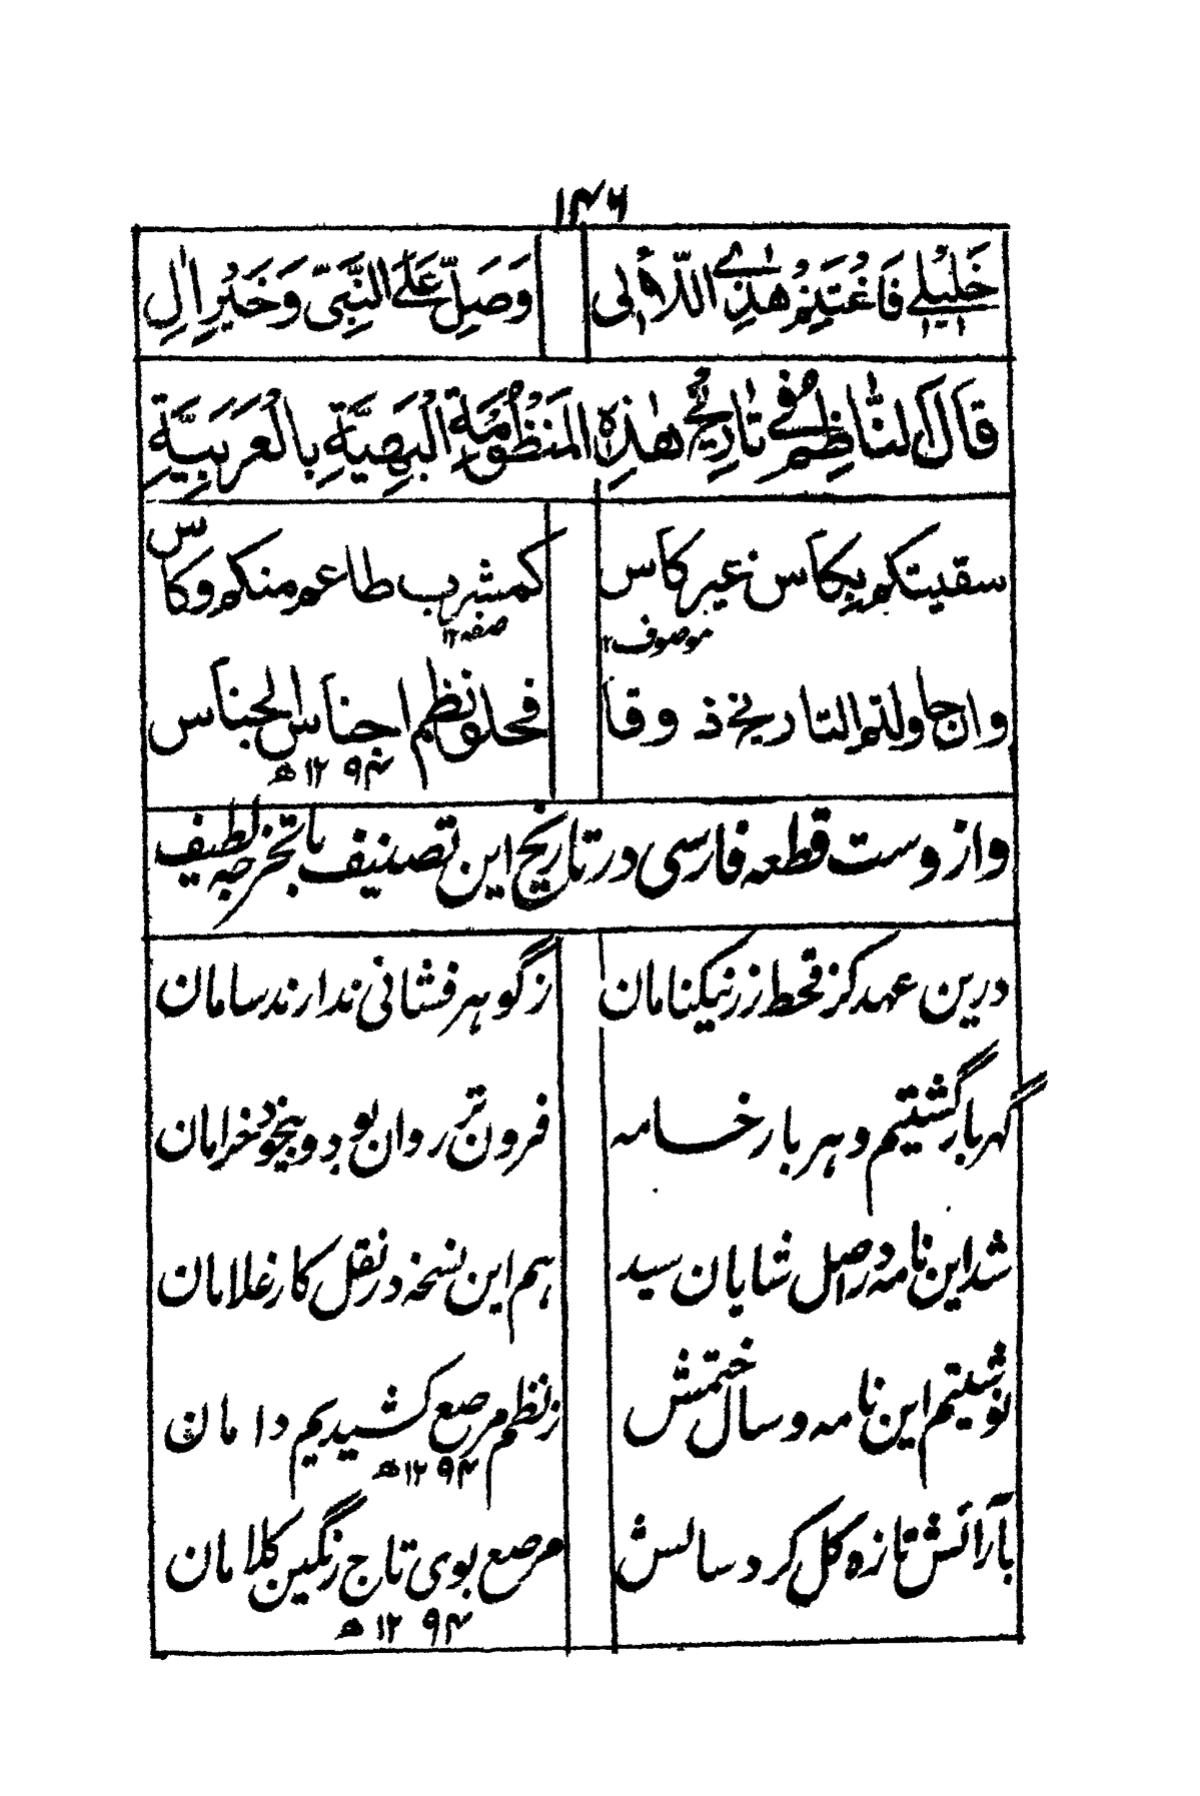 ۱۴۶
خَلِیْلِے فَاغْتَنِمْ هٰذِے اللّاٰلی وَصَلِّ عَلَے النَّبِیِّ وَخَیْرِ اٰلِ
قَالَ النَّاظِمُ فِے تَارِیْخِ هٰذِهِ الْمَنْظُوْمَةِ الْبَهِیَّةِ بِالْعَرَبِیَّةِ
سقیتکم بِکَاسٍ غیر کاس کمشرب طاعم منکم وکاس
موصوف۱۲ صفه۱۲
واذ جا ولتم التاریخ ذوقا فحلو نظم اجناس الجناس
۱۲۹۴ھ
واز وست قطعه فارسی در تاریخ این تصنیف با تخرجه لطیف
درین عهد کز قحط زر نیکنامان ز گوهر فشانی ندارند سامان
گهربار گشتیم و هر بار خامه فزون تر روان بود و بیخود خرامان
شد این نامه در اصل شایان سید هم این نسخه در نقل کار غلامان
نوشتیم این نامه و سال ختمش ز نظم مرصع کشیدیم دامان
۱۲۹۴ھ
بآرائش تازه گل کرد سالش مرصع بوی تاج رنگین کلامان
۱۲۹۴ھ